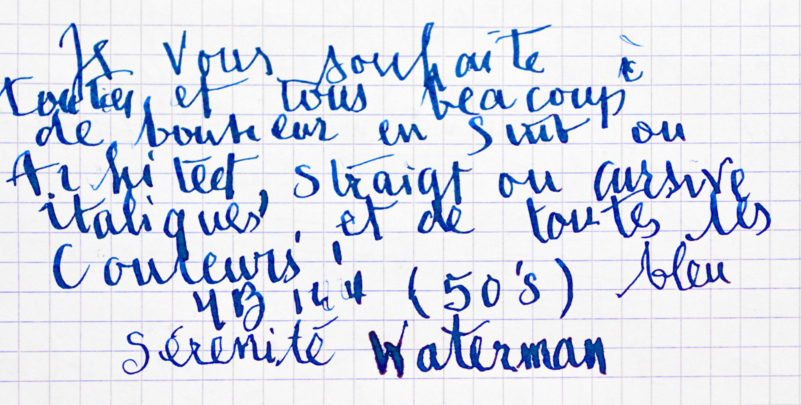 Je vous souhaite à
toutes et tous beaucoup
de bonheur en Stub ou
Architect, Straight ou cursive
italiques, et de toutes les
Couleurs !
MB 144 (50's) bleu
Sérénité Waterman